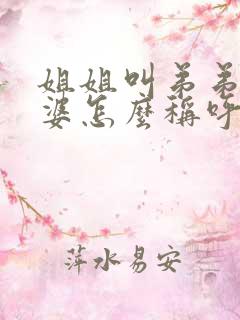 姐姐叫弟弟
婆怎麼稱呼
萍水易安